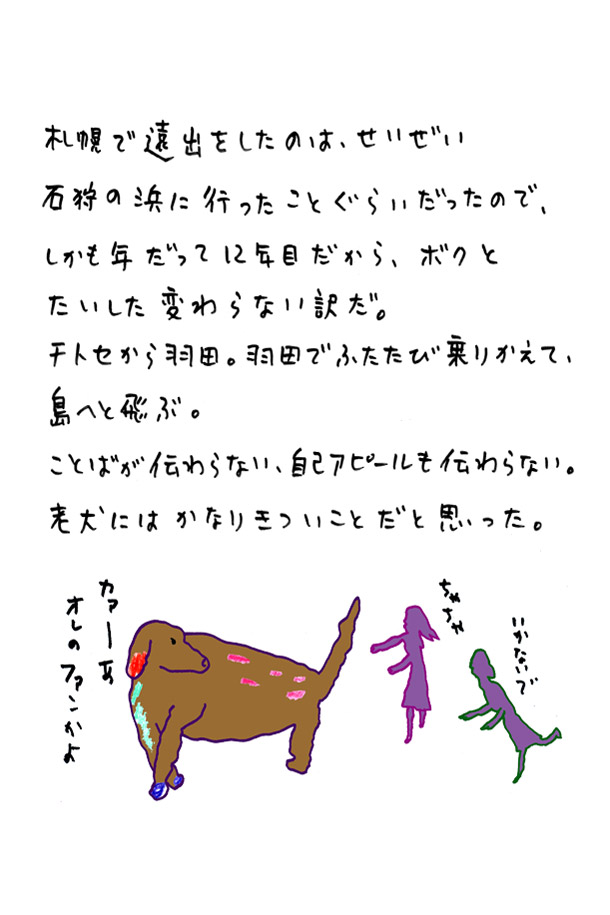 札幌で遠出をしたのは、せいぜい
石狩の浜に行ったことぐらいだったので、
しかも年だって12年目だから、ボクと
たいした変わらない訳だ。
チトセから羽田。羽田でふたたび乗りかえて、
島へと飛ぶ。
ことばが伝わらない、自己アピールも伝わらない。
老犬にはかなりきついことだと思った。
カァーあ
オレのファンかよ
ちゃちゃ
いかないで